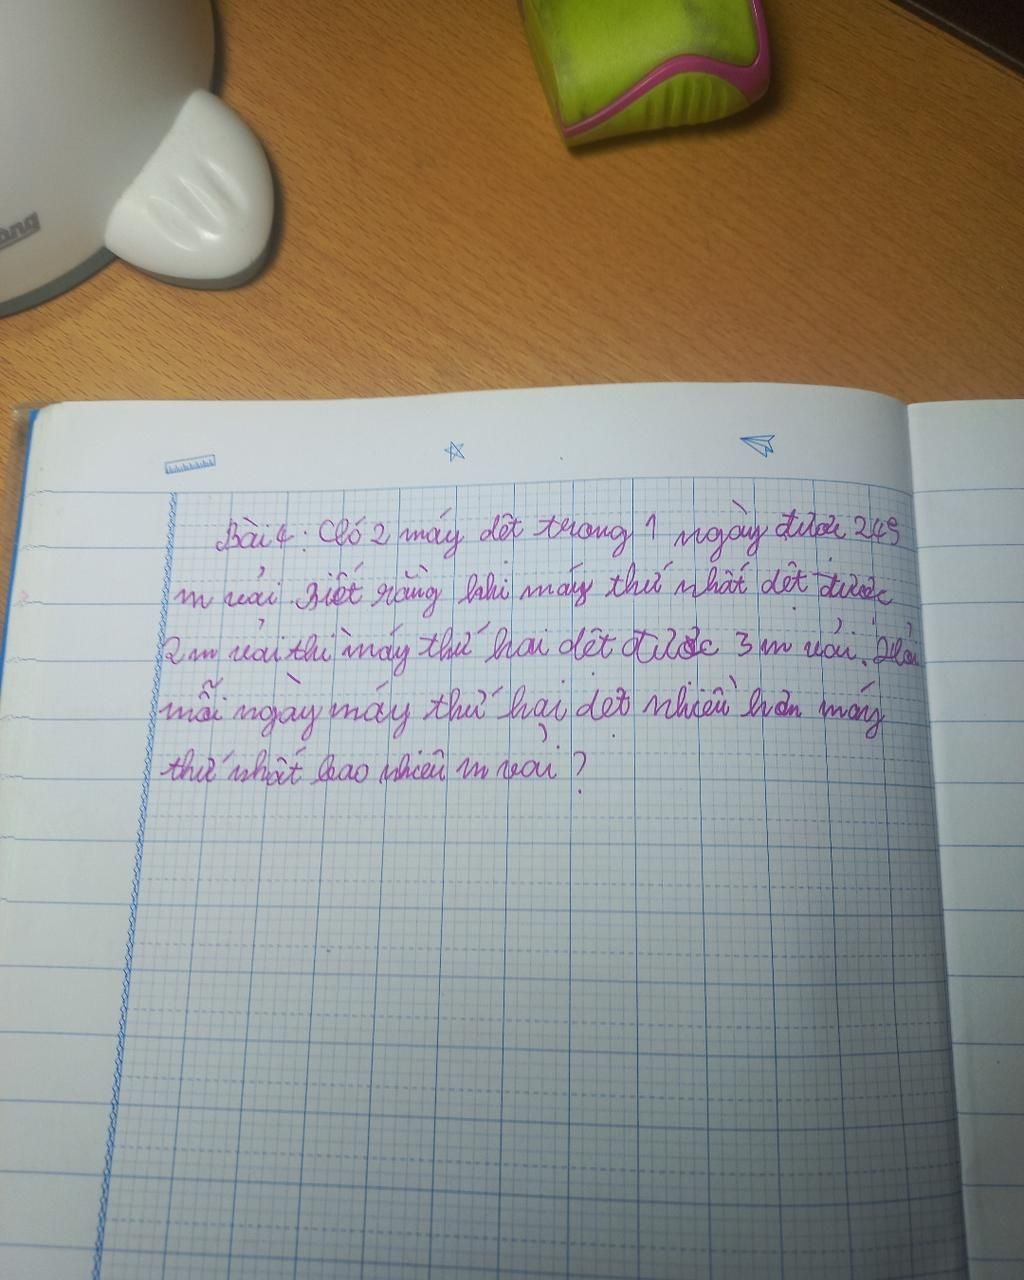 ang
Bài 4: Có 2 máy dệt trong 1 ngày được 245
m vải. Biết rằng khi máy thứ nhất dệt được
2m vải thì máy thứ hai dệt được 3 m vải. Hỏi
mỗi ngày máy thứ hai dệt nhiều hơn máy
thứ nhất bao nhiêu m vải?